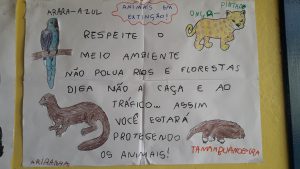 ANIMAIS EM
EXTINÇÃO!
ARARA-AZUL
ONÇA-PINTADA
RESPEITE O
MEIO AMBIENTE
NÃO POLUA RIOS E FLORESTAS
DIGA NÃO A CAÇA E AO
TRÁFICO... ASSIM
VOCÊ ESTARÁ
PROTEGENDO
OS ANIMAIS!
ARIRANHA